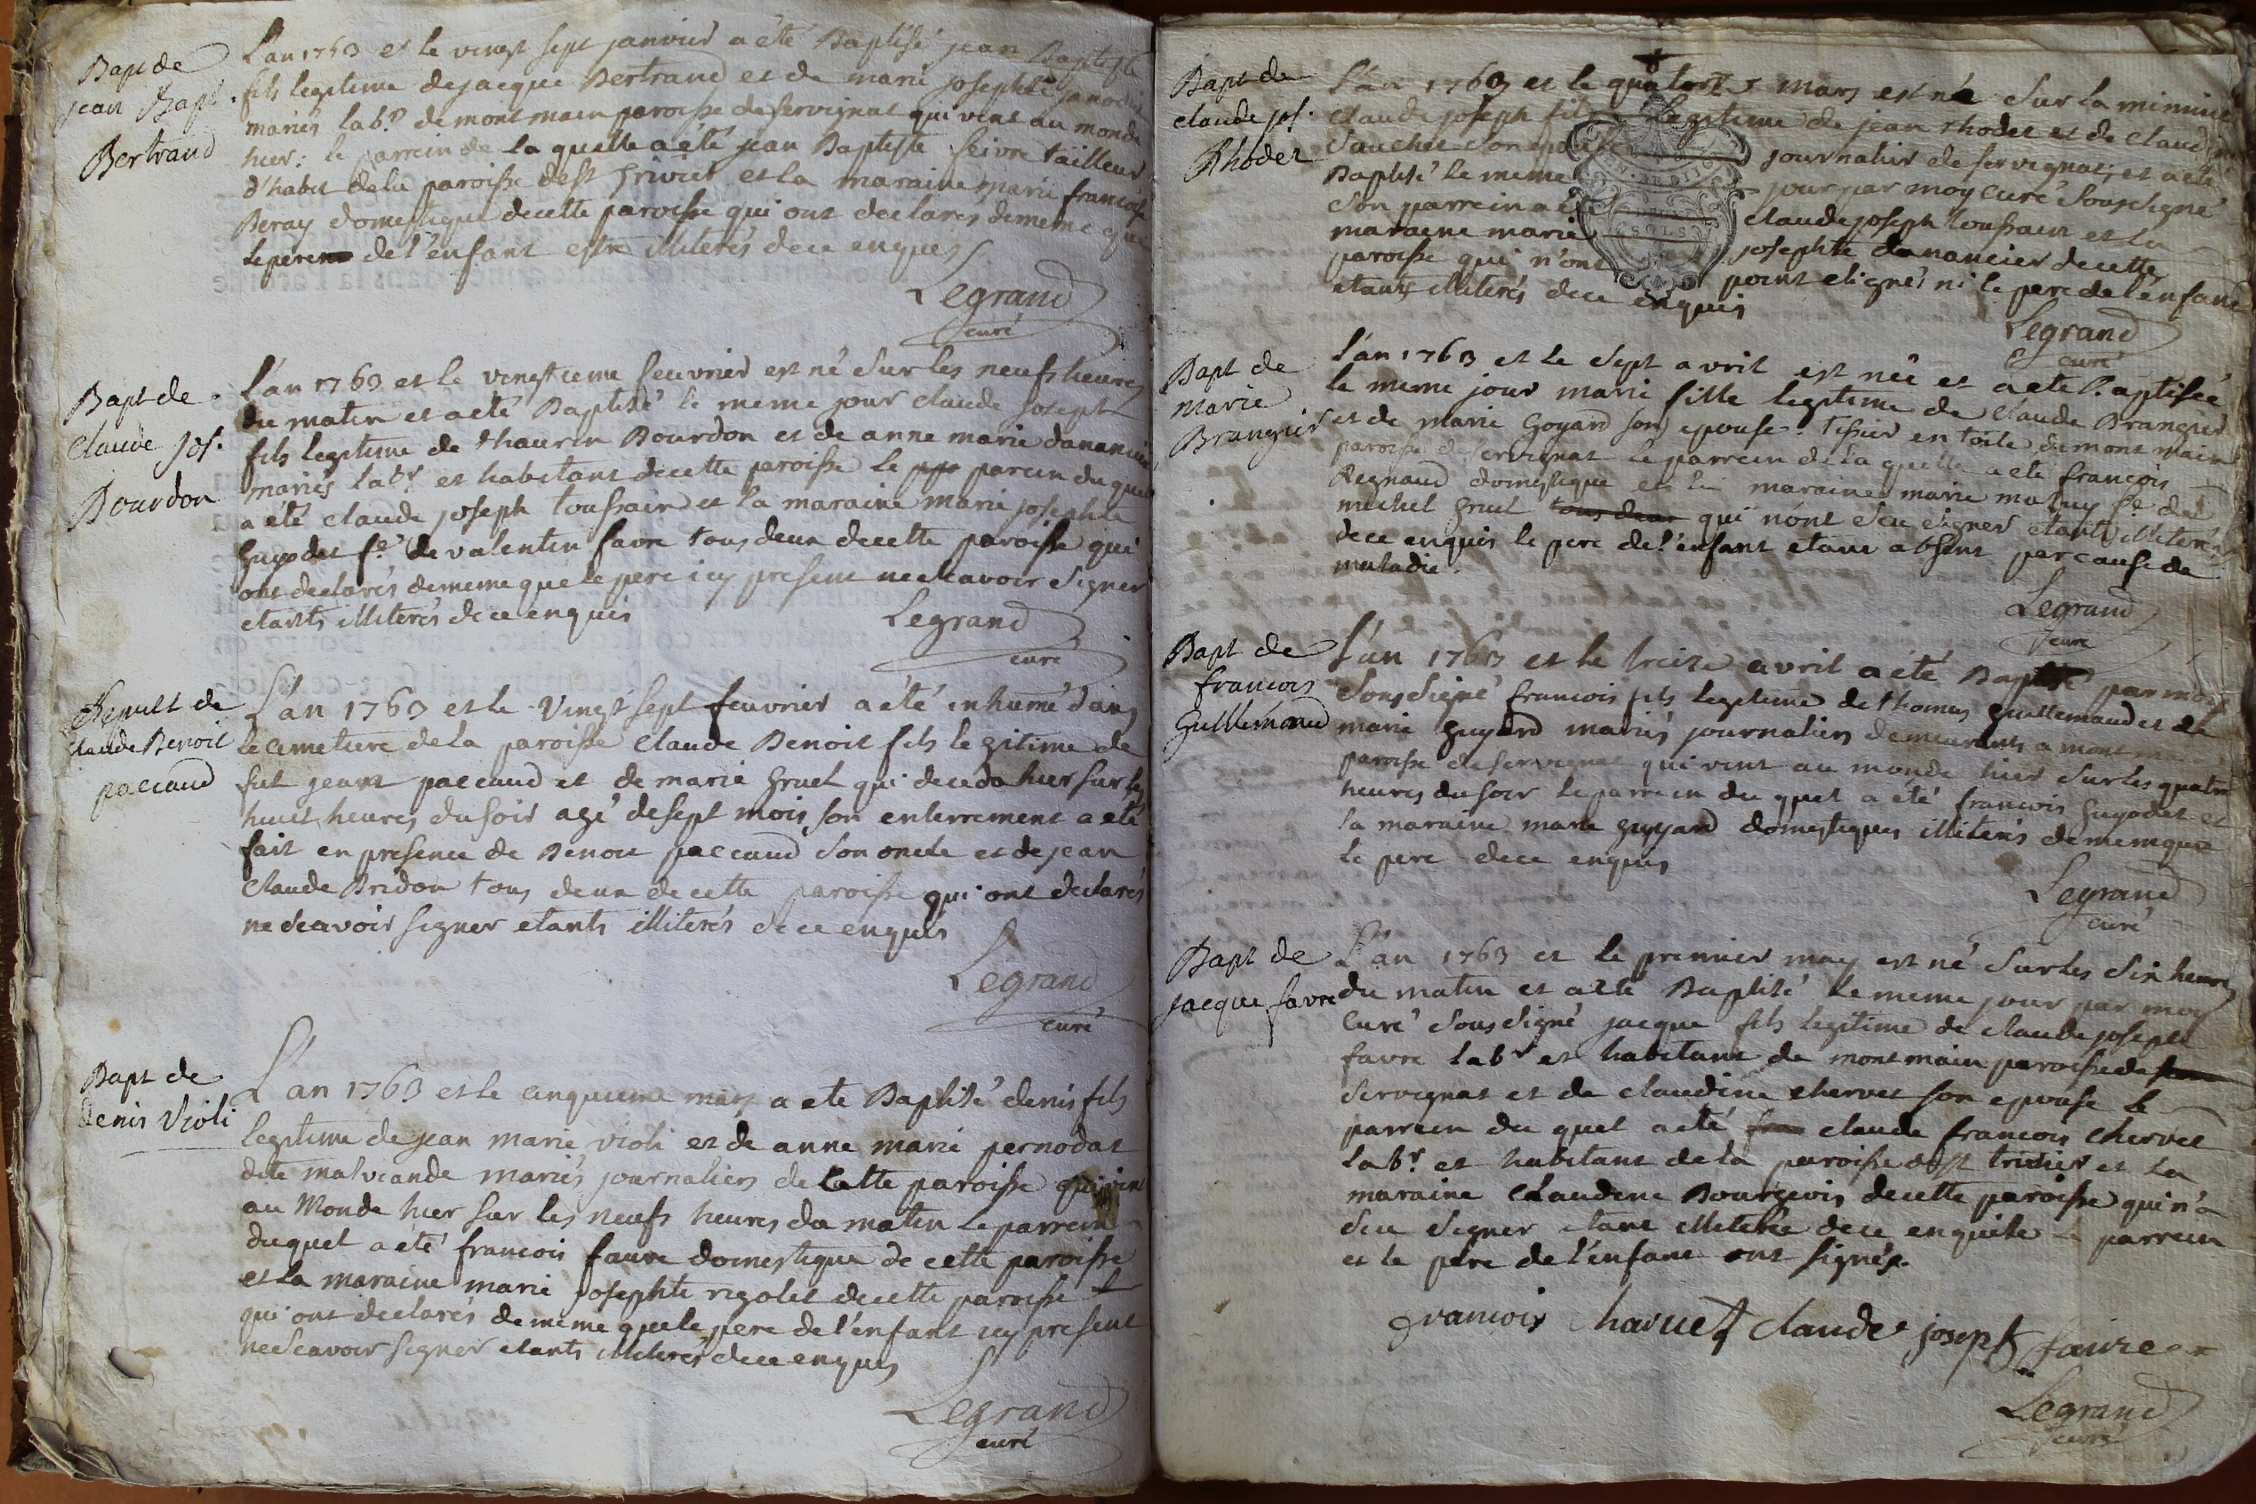 Bapt de
jean Bapt.
Bertrand
L'an 1763 et le vingt sept janvier a été Baptisé jean Baptiste
fils legitime de jacque Bertrand et de marie josephte janodet
mariés lab.r de montmain paroisse de servignat qui vint au monde
hier; le parrein de la quelle a été jean Baptiste feivre tailleur
d'habit de la paroisse de st trivier et la maraine marie francoise
Beray domestique de cette paroisse qui ont declarés de meme que
le pere de l'énfant estre illiterés de ce enquis
Legrand
curé
Bapt de
Claude jos.
Bourdon
L'an 1763 et le vingtieme feuvrier est né sur les neufs heures
du matin et a eté Baptisé le meme jour claude joseph
fils legitime de thaurin Bourdon et de anne marie danancier
mariés lab.r et habitant de cette paroisse le parein du quel
a eté claude joseph toussain et la maraine marie josephte
guyodet f.e de valentin favre tous deux de cette paroisse qui
ont declarés de meme que le pere icy present ne scavoir signer
etants illiterés de ce enquis
Legrand
curé
Sepult de
claude Benoit
paccaud
L'an 1763 et le vingt sept feuvrier a été inhumé dans
le cemetiere de la paroisse claude Benoit fils legitime de
fut jeant paccaud et de marie gruel qui deceda hier sur les
huict heures du soir agé de sept mois son enterrement a eté
fait en presence de Benoit paccaud son oncle et de jean
claude Bridon tous deux de cette paroisse qui ont declarés
ne scavoir signer etants illiterés de ce enquis
Legrand
curé
Bapt de
denis Violi
L'an 1763 et le cinquieme mars a ete Baptisé denis fils
legitime de jean marie violi et de anne marie pernodat
dite malviande mariés journaliers de cette paroisse qui vint
au Monde hier sur les neufs heures du matin le parrein
du quel a été francois faure domestique de cette paroisse
et la maraine marie josephte rigolet de cette paroisse
qui ont declarés de même que le pere de l'énfant icy present
ne scavoir signer etants illiterés de ce enquis
Legrand
curé
Bapt de
claude jos.
Rhodet
L'an 1763 et le quatorze mars est né sur la minuit
claude joseph fils legitime de jean rhodet et de claudine
sauchet son epouse journalier de servignat, et a eté
Baptisé le meme jour par moy curé soussigné
son parrein a eté claude joseph toussain et la
maraine marie josephte danancier de cette
paroisse qui n'ont point signés ni le pere de l'énfant
etants illiterés de ce enquis
Legrand
curé
Bapt de
marie
Brangier
L'an 1763 et le sept avril est née et a ete Baptisée
le meme jour marie fille legitime de claude Brangier
et de marie Goyard son epouse tissier en toile de montmain
paroisse de servignat le parrein de la quelle a eté françois
Regnaud domestique et la maraine marie f.e de
michel gruel qui n'ont sceu signer etants illiterés
de ce enquis le pere de l'énfant etant absent par cause de
maladie.
Legrand
curé
Bapt de
francois
Guillemaud
L'an 1763 et le treize avril a été Baptisé par moy
soussigné francois fils legitime de thomas guillemaud et de
marie guyard mariés journaliers demeurants a montmain
paroisse de servignat qui vint au monde hier sur les quatre
heures du soir le parrein du quel a été francois guyodet et
la maraine marie guyard domestiques illiterés de meme que
le pere de ce enquis
Legrand
curé
Bapt de
jacque favre
L'an 1763 et le premier may est né sur les six heures
du matin et a eté Baptisé le meme jour par moy
curé soussigné jacque fils legitime de claude joseph
favre lab.r et habitant de montmain paroisse de
servignat et de claudine chervet son epouse le
parrein du quel a eté claude francois chervet
lab.r et habitant de la paroisse de st trivier et la
maraine claudine Bourgeois de cette paroisse qui n'a
sceu signer etant illiterée de ce enquise le parrein
et le pere de l'énfant ont signés.
francois charvet claude joseph faivre
Legrand
curé